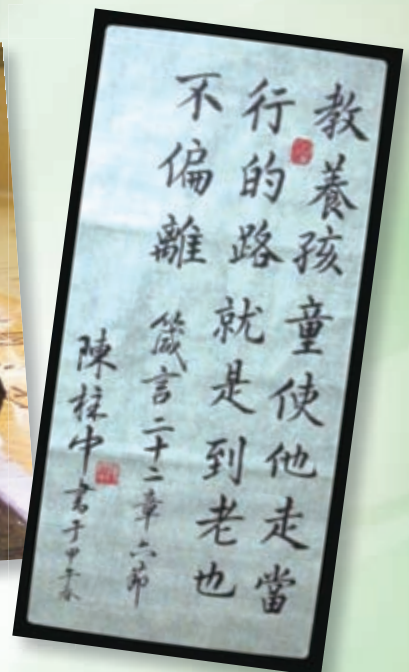 教養孩童使他走當
行的路就是到老也
不偏離
箴言二十二章六節
陳梓中書于甲午春